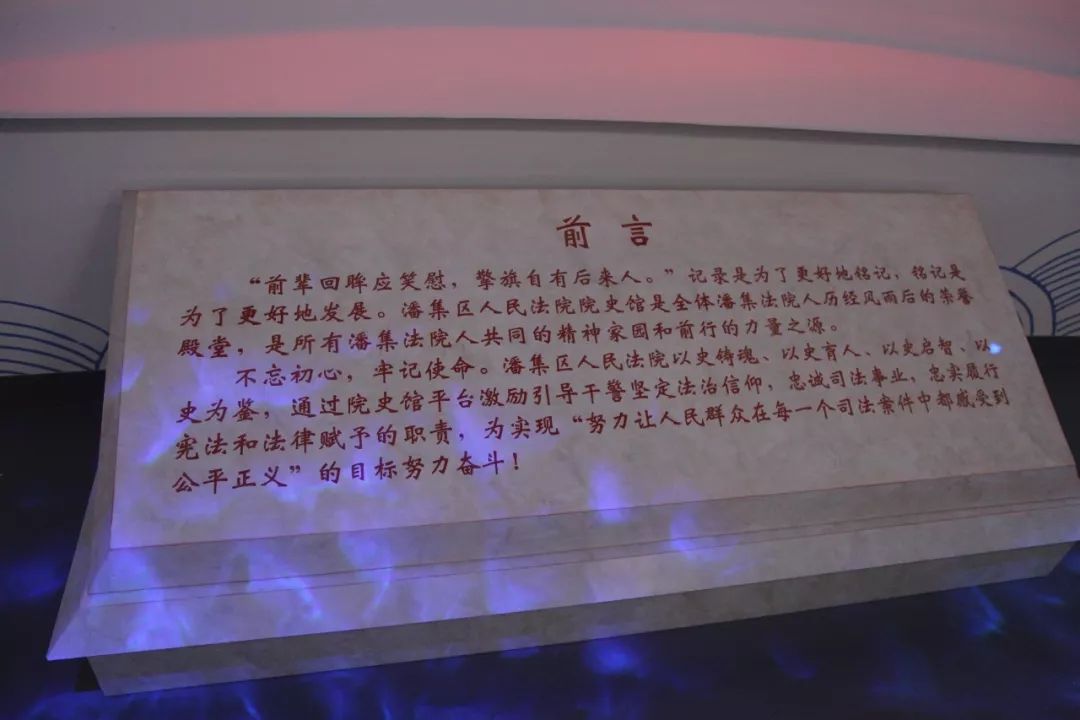 前言
“前辈回眸应笑慰，擎旗自有后来人。”记录是为了更好地铭记，铭记是
为了更好地发展。潘集区人民法院院史馆是全体潘集法院人历经风雨后的荣誉
殿堂，是所有潘集法院人共同的精神家园和前行的力量之源。
不忘初心，牢记使命。潘集区人民法院以史铸魂、以史育人、以史启智、以
史为鉴，通过院史馆平台激励引导干警坚定法治信仰，忠诚司法事业，忠实履行
宪法和法律赋予的职责，为实现“努力让人民群众在每一个司法案件中都感受到
公平正义”的目标努力奋斗！